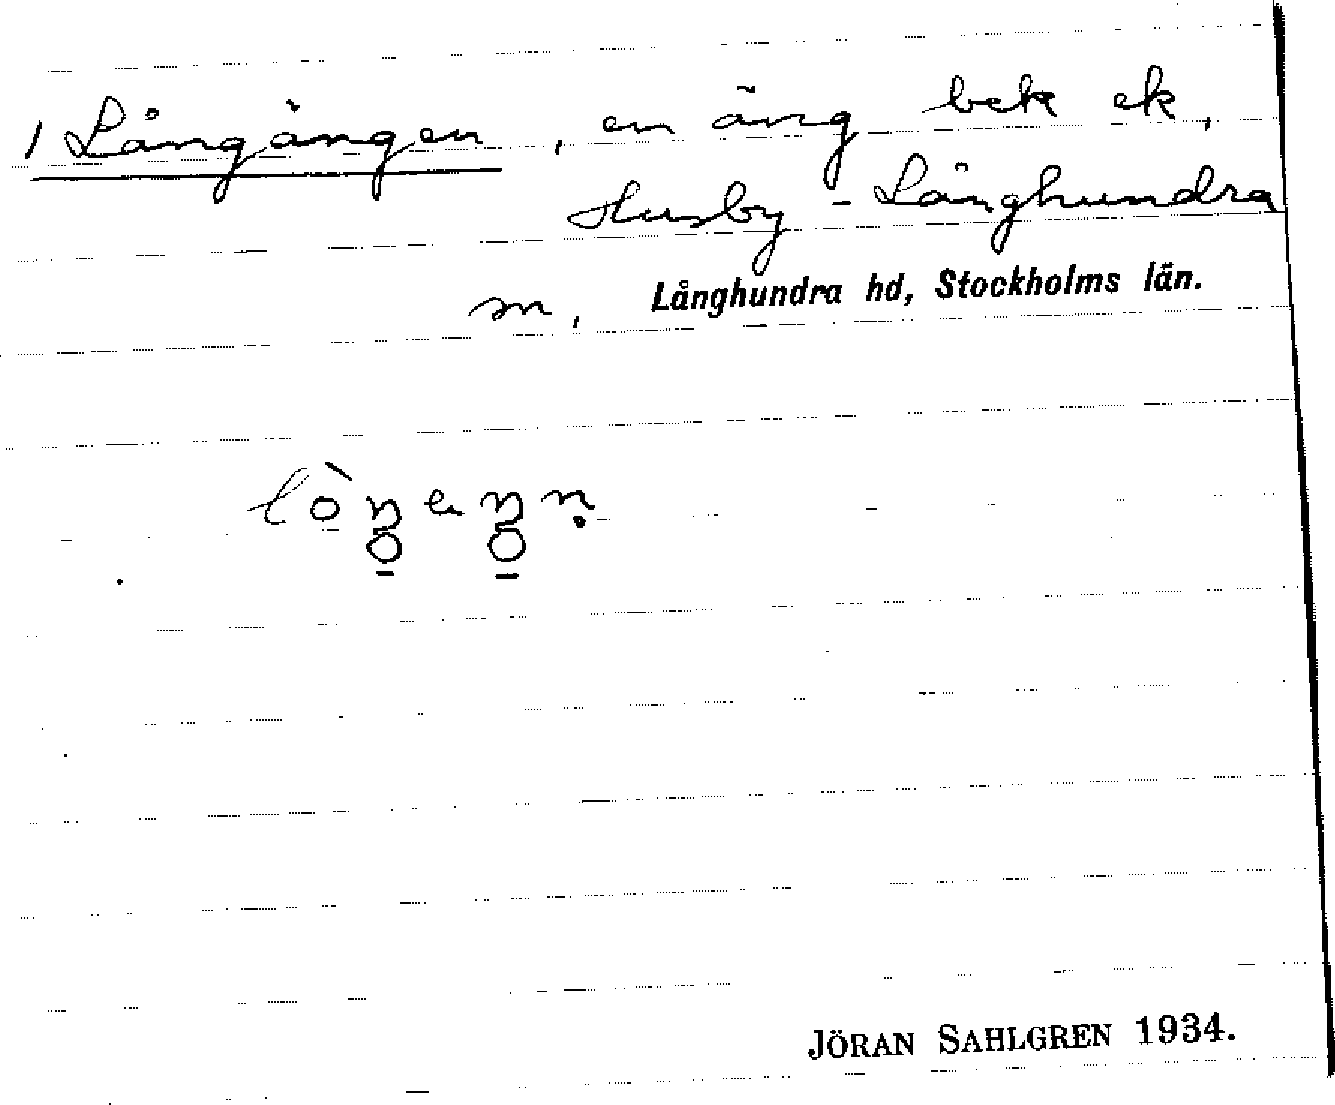 / Långängen, en äng bek ek,
Husby-Långhundra
sn, Långhundra hd, Stockholms län.
JÖRAN SAHLGREN 1934.